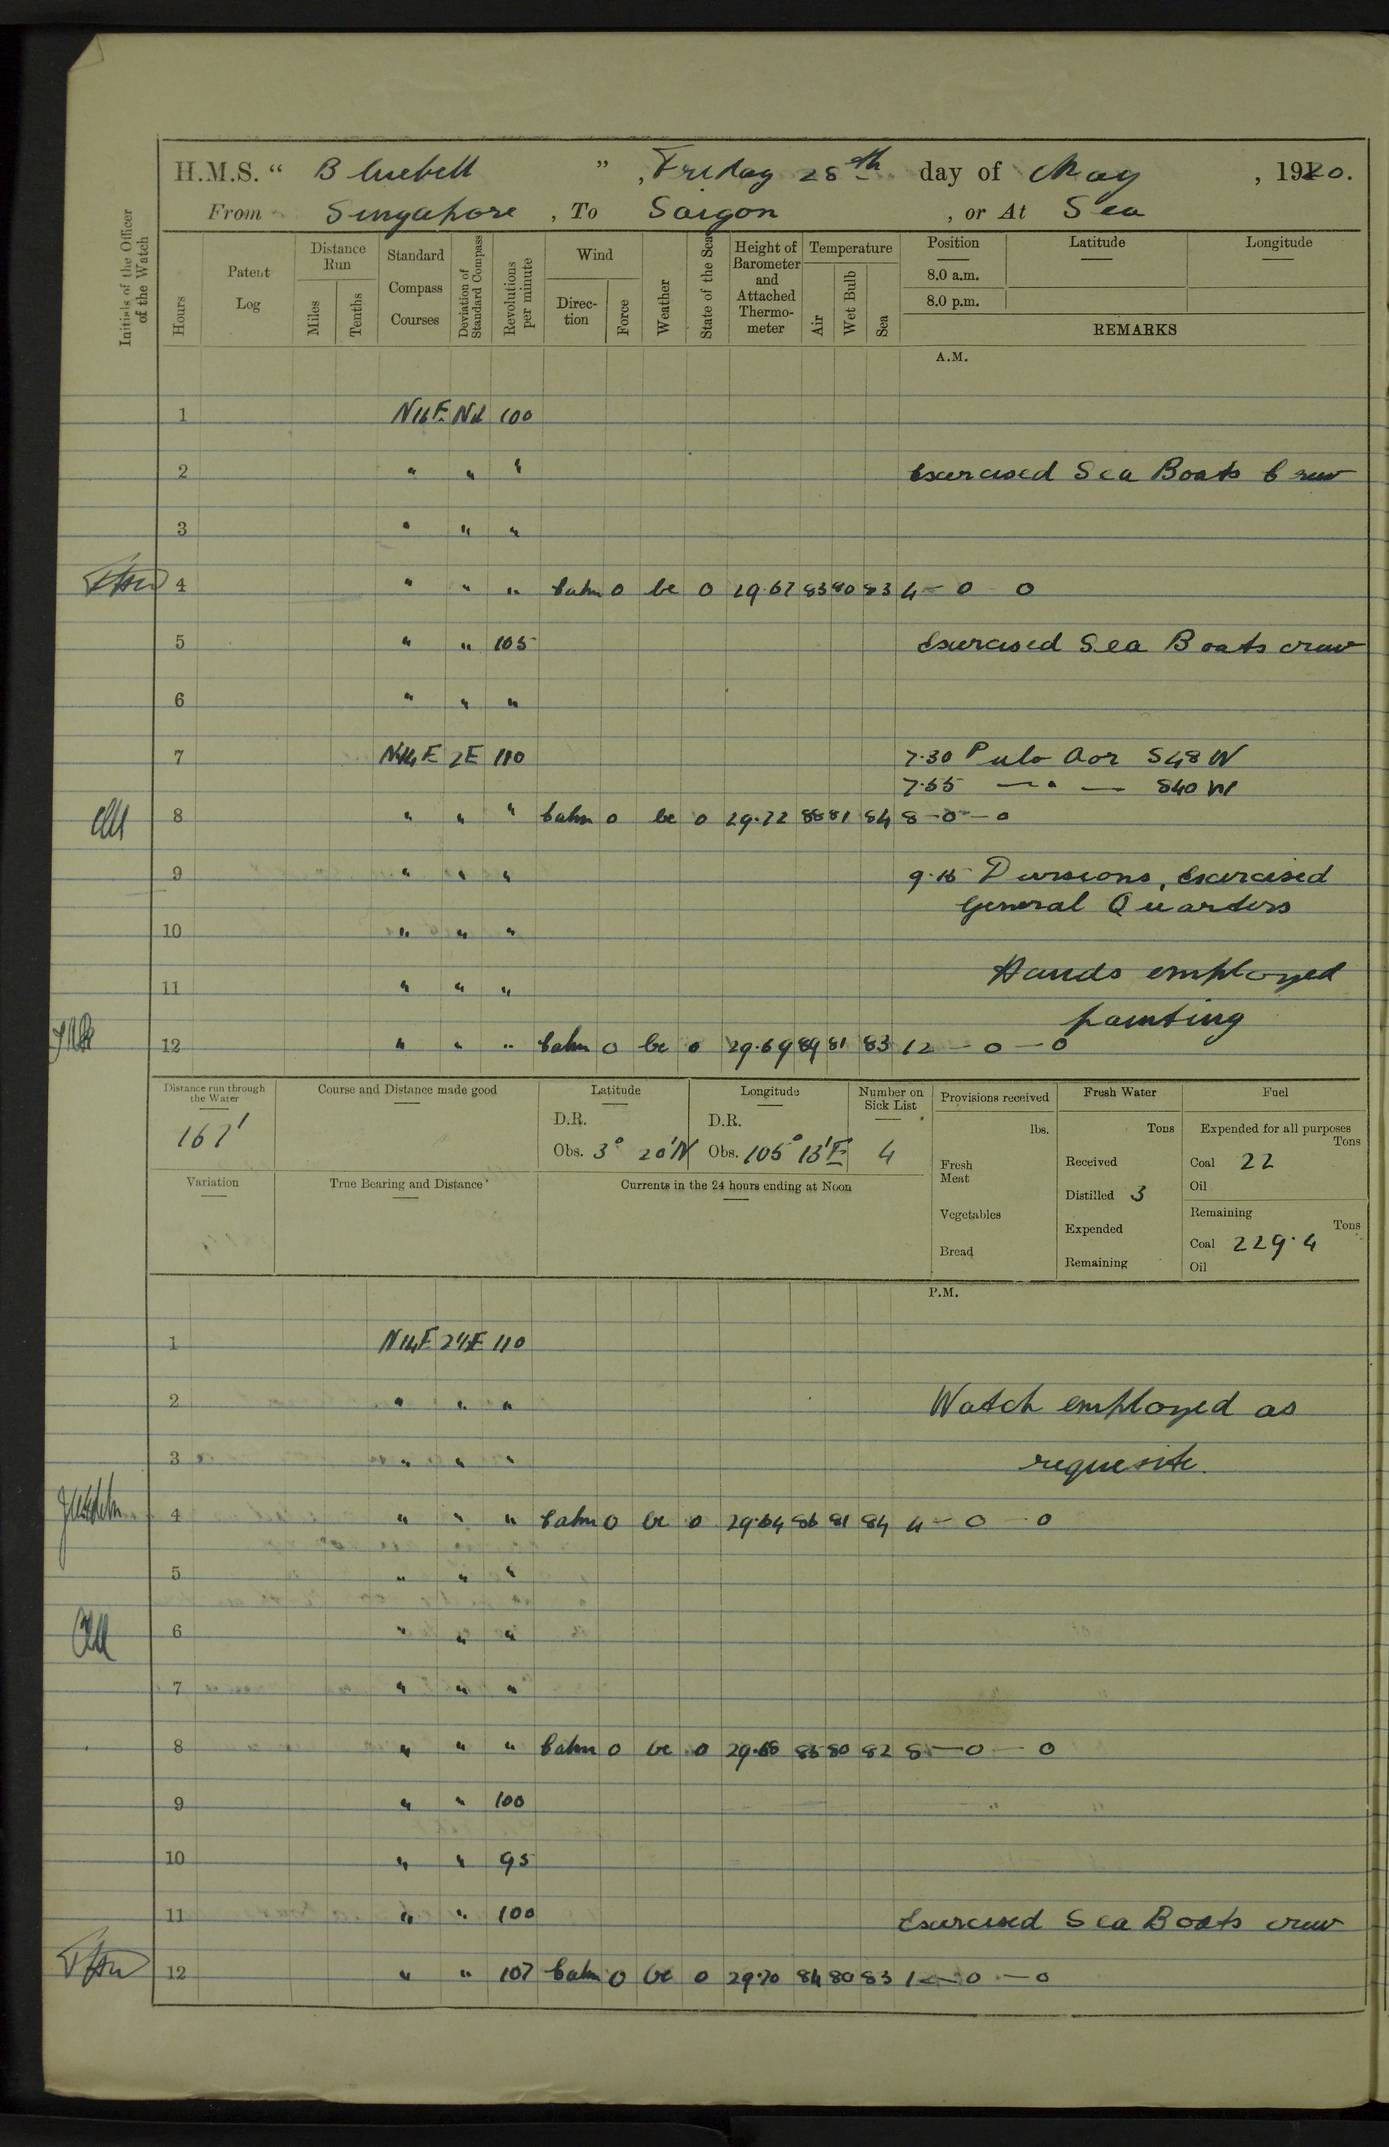 H.M.S. “ Bluebell ” , Friday 28th day of May , 1920.
From Singapore , To Saigon , or At Sea
Initials of the Officer of the Watch
Hours
Patent Log
Distance Run
Miles
Tenths
Standard Compass Courses
Deviation of Standard Compass
Revolutions per minute
Wind
Direction
Force
Weather
State of the Sea
Height of Barometer and Attached Thermometer
Temperature
Air
Wet Bulb
Sea
Position
Latitude
Longitude
8.0 a.m.
8.0 p.m.
REMARKS
A.M.
1 N16E Nil 100
2 " " " Exercised Sea Boats Crew
3 " " "
4 " " " Calm 0 bc 0 29.67 83 80 83 4 — 0 0
5 " " 105 Exercised Sea Boats crew
6 " " "
7 N14E 2E 110 7.30 Pulo Aor S48W
7.55 — " — S40W
8 " " " Calm 0 bc 0 29.72 88 81 84 8 — 0 — 0
9 " " " 9.15 Divisions, Exercised
General Quarters
10 " " "
11 " " " Hands employed
painting
12 " " " Calm 0 bc 0 29.69 89 81 83 12 — 0 — 0
Distance run through the Water
167'
Course and Distance made good
Latitude
D.R.
Obs. 3° 20'N
Longitude
D.R.
Obs. 105° 13'E
Number on Sick List
4
Provisions received
lbs.
Fresh Meat
Vegetables
Bread
Fresh Water
Tons
Received
Distilled 3
Expended
Remaining
Fuel
Expended for all purposes
Tons
Coal 22
Oil
Remaining
Tons
Coal 229.4
Oil
Variation
True Bearing and Distance
Currents in the 24 hours ending at Noon
P.M.
1 N14E 2½E 110
2 " " " Watch employed as
3 " " " requesite.
4 " " " Calm 0 bc 0 29.64 86 81 84 4 — 0 0
5 " " "
6 " " "
7 " " "
8 " " " Calm 0 bc 0 29.68 85 80 82 8 — 0 — 0
9 " " 100
10 " " 95
11 " " 100 Exercised Sea Boats crew
12 " " 107 Calm 0 bc 0 29.70 84 80 83 1 — 0 — 0